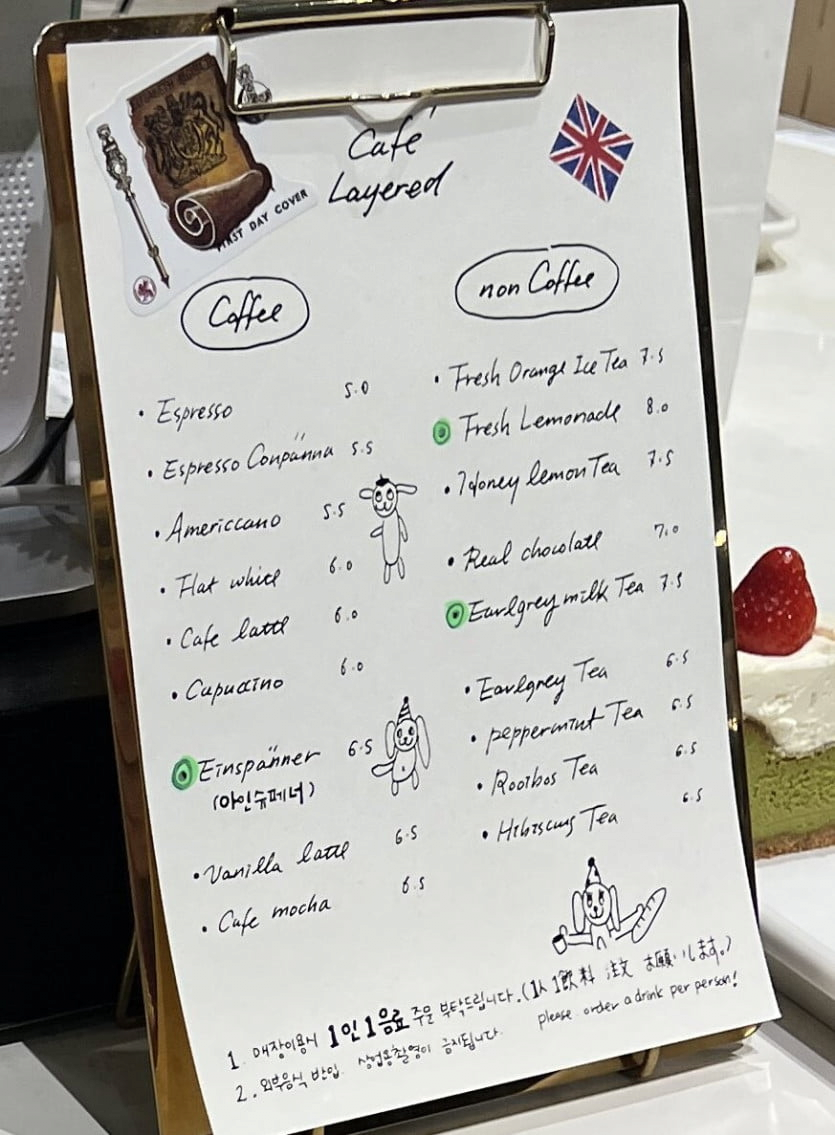 FIRST DAY COVER
Café
Layered
Coffee
• Espresso 5.0
• Espresso Conpänna 5.5
• Americcano 5.5
• Flat white 6.0
• Cafe latte 6.0
• Capuccino 6.0
Einspänner 6.5
(아인슈페너)
• Vanilla latte 6.5
• Cafe mocha 6.5
non Coffee
• Fresh Orange Ice Tea 7.5
Fresh Lemonade 8.0
• Honey lemon Tea 7.5
• Real chocolate 7.0
Earlgrey milk Tea 7.5
• Earlgrey Tea 6.5
• peppermint Tea 6.5
• Rooibos Tea 6.5
• Hibiscus Tea 6.5
1. 매장이용시 1인 1음료 주문 부탁드립니다. (1人 1飲料 注文 お願いします。)
please order a drink per person!
2. 외부음식 반입. 상업용촬영이 금지됩니다.